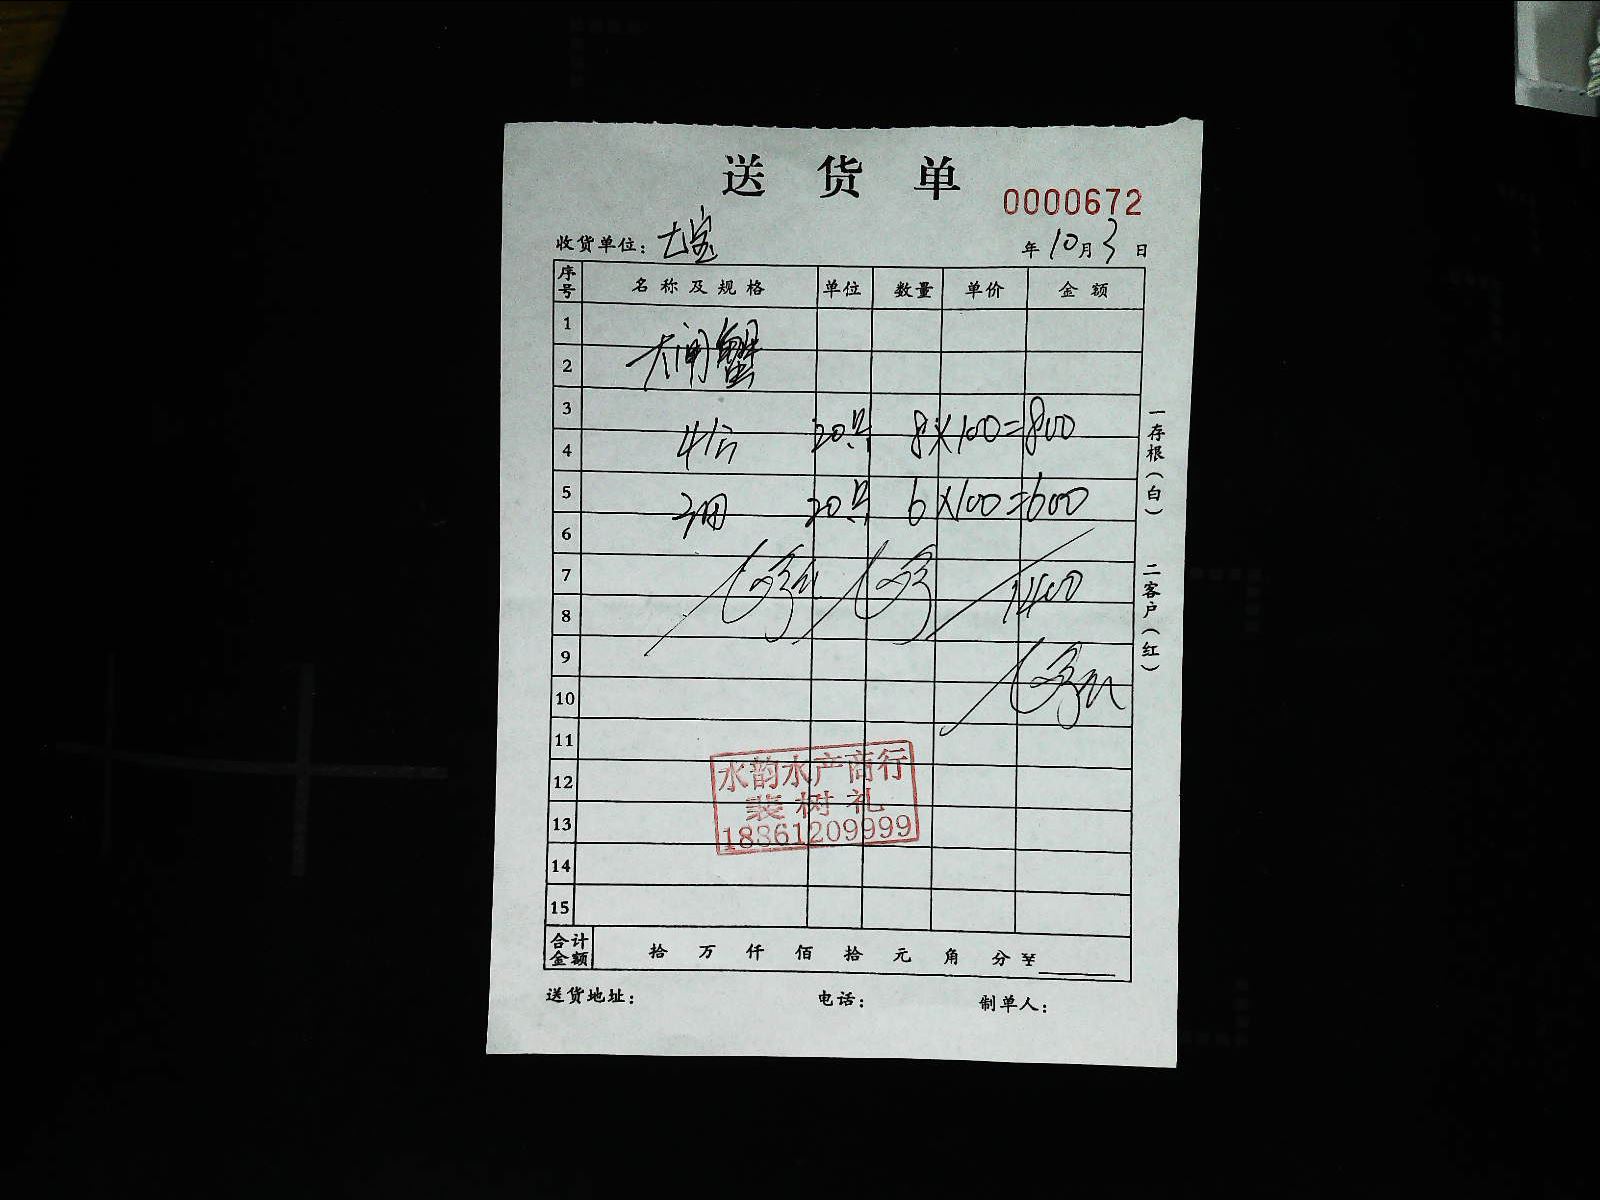 送 货 单
0000672
收货单位: 七宝 年 10 月 3 日
序号 名称及规格 单位 数量 单价 金额
1
2 大闸蟹
3
4 20只 8×100=800
5 20只 6×100=600
6
7
8 1400
9
10
11
12
13
14
15
水韵水产商行
裴树礼
18361209999
合计金额 拾 万 仟 佰 拾 元 角 分 ¥
送货地址: 电话: 制单人:
一存根(白) 二客户(红)